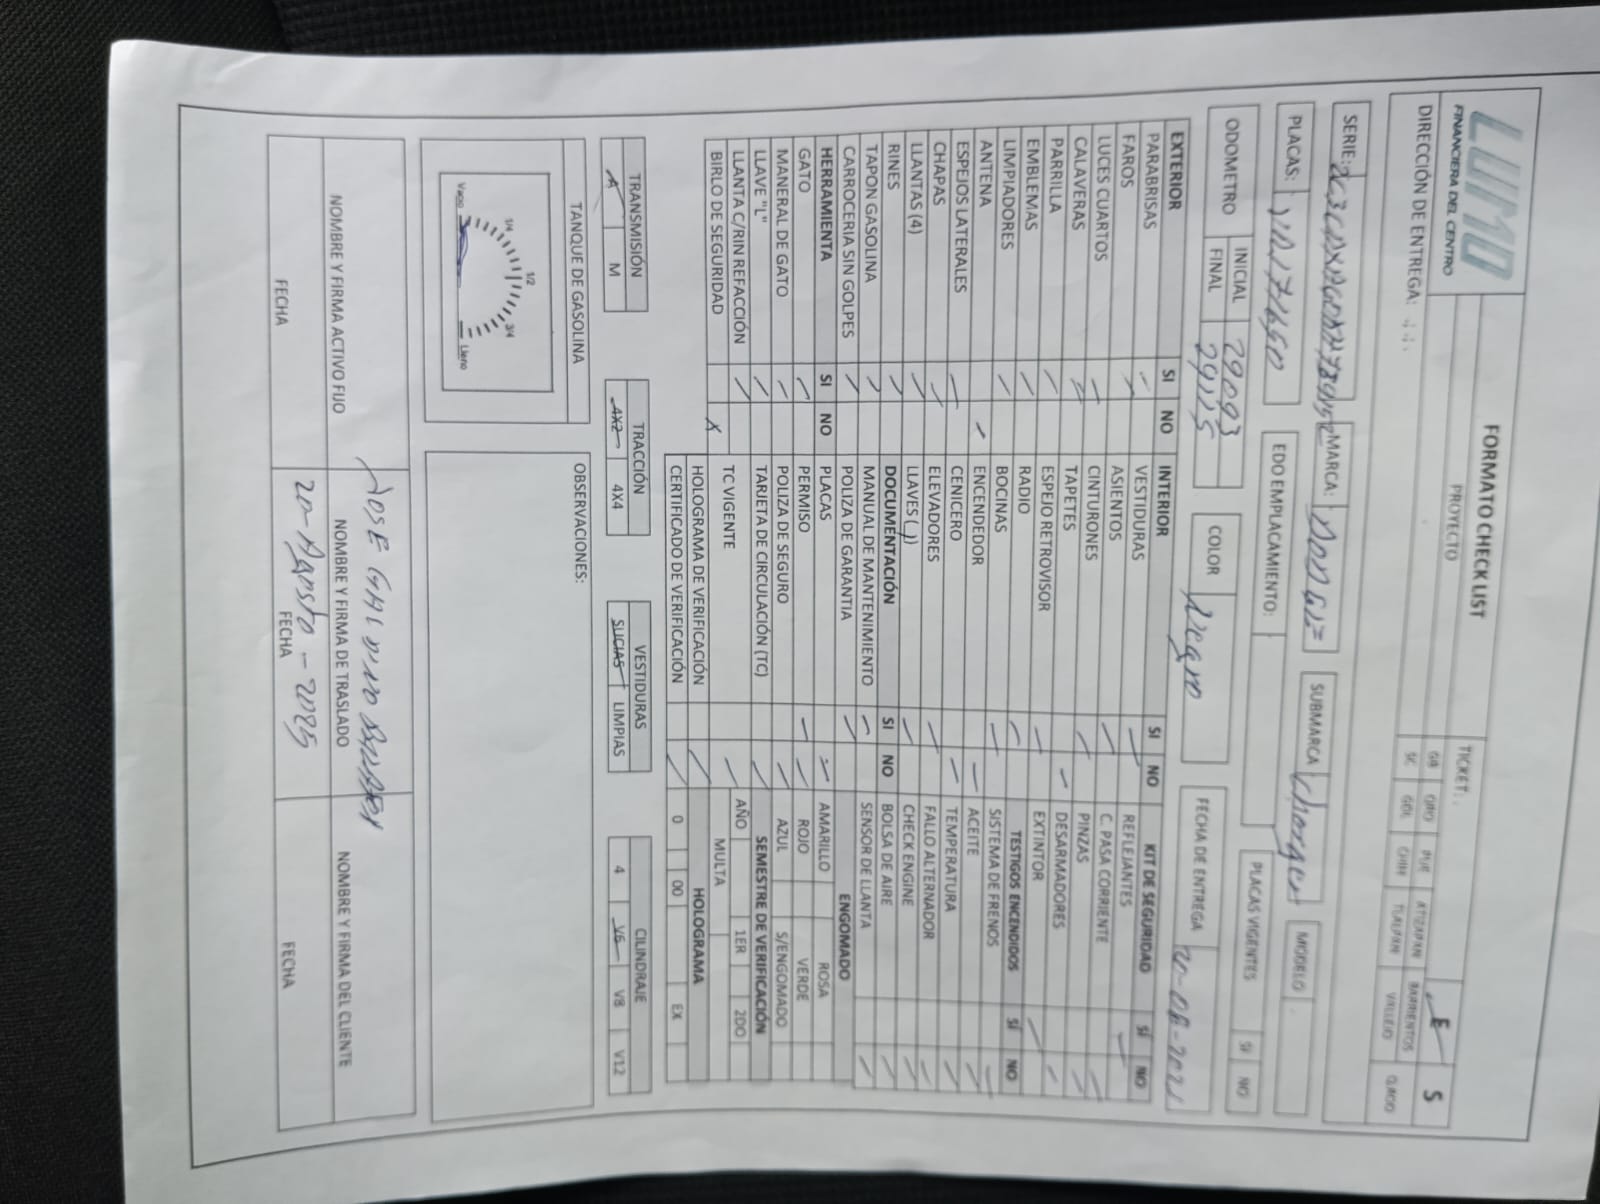 LUMO
FINANCIERA DEL CENTRO
FORMATO CHECK LIST
PROYECTO
TICKET:
E S
DIRECCIÓN DE ENTREGA:
GB QRO PUE ATIZAPAN BARRIENTOS
SC GDL CHIH TLALPAN VALLEJO Q.ROO
SERIE: MARCA: DODGE SUBMARCA Charger MODELO
PLACAS: EDO EMPLACAMIENTO: PLACAS VIGENTES SI NO
ODOMETRO INICIAL 29093 COLOR Negro FECHA DE ENTREGA
FINAL 29115
EXTERIOR SI NO INTERIOR SI NO KIT DE SEGURIDAD SÍ NO
PARABRISAS VESTIDURAS REFLEJANTES
FAROS ASIENTOS C. PASA CORRIENTE
LUCES CUARTOS CINTURONES PINZAS
CALAVERAS TAPETES DESARMADORES
PARRILLA ESPEJO RETROVISOR EXTINTOR
EMBLEMAS RADIO TESTIGOS ENCENDIDOS SÍ NO
LIMPIADORES BOCINAS SISTEMA DE FRENOS
ANTENA ENCENDEDOR ACEITE
ESPEJOS LATERALES CENICERO TEMPERATURA
CHAPAS ELEVADORES FALLO ALTERNADOR
LLANTAS (4) LLAVES (1) CHECK ENGINE
RINES DOCUMENTACIÓN SI NO BOLSA DE AIRE
TAPON GASOLINA MANUAL DE MANTENIMIENTO SENSOR DE LLANTA
CARROCERIA SIN GOLPES POLIZA DE GARANTIA ENGOMADO
HERRAMIENTA SI NO PLACAS AMARILLO ROSA
GATO PERMISO ROJO VERDE
MANERAL DE GATO POLIZA DE SEGURO AZUL S/ENGOMADO
LLAVE "L" TARJETA DE CIRCULACIÓN (TC) SEMESTRE DE VERIFICACIÓN
LLANTA C/RIN REFACCIÓN TC VIGENTE AÑO 1ER 2DO
BIRLO DE SEGURIDAD X MULTA
HOLOGRAMA DE VERIFICACIÓN HOLOGRAMA
CERTIFICADO DE VERIFICACIÓN 0 00 EX
TRANSMISIÓN TRACCIÓN VESTIDURAS CILINDRAJE
A M 4X2 4X4 SUCIAS LIMPIAS 4 V6 V8 V12
TANQUE DE GASOLINA OBSERVACIONES:
1/4 1/2 3/4
Vacio Lleno
JOSE GALDINO
NOMBRE Y FIRMA ACTIVO FIJO NOMBRE Y FIRMA DE TRASLADO NOMBRE Y FIRMA DEL CLIENTE
20-Agosto-2025
FECHA FECHA FECHA